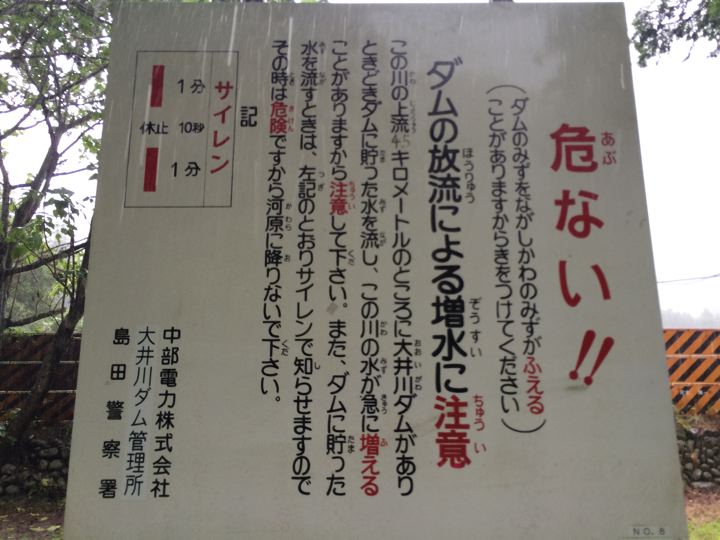 危ない!!
あぶ
(ダムのみずをながしかわのみずがふえる
ことがありますからきをつけてください)
ダムの放流による増水に注意
ほうりゅう ぞうすい ちゅうい
この川の上流45キロメートルのところに大井川ダムがあり
ときどきダムに貯った水を流し、この川の水が急に増える
ことがありますから注意して下さい。また、ダムに貯った
水を流すときは、左記のとおりサイレンで知らせますので
その時は危険ですから河原に降りないで下さい。
記
サイレン
1分
休止 10秒
1分
中部電力株式会社
大井川ダム管理所
島田警察署
NO. 8